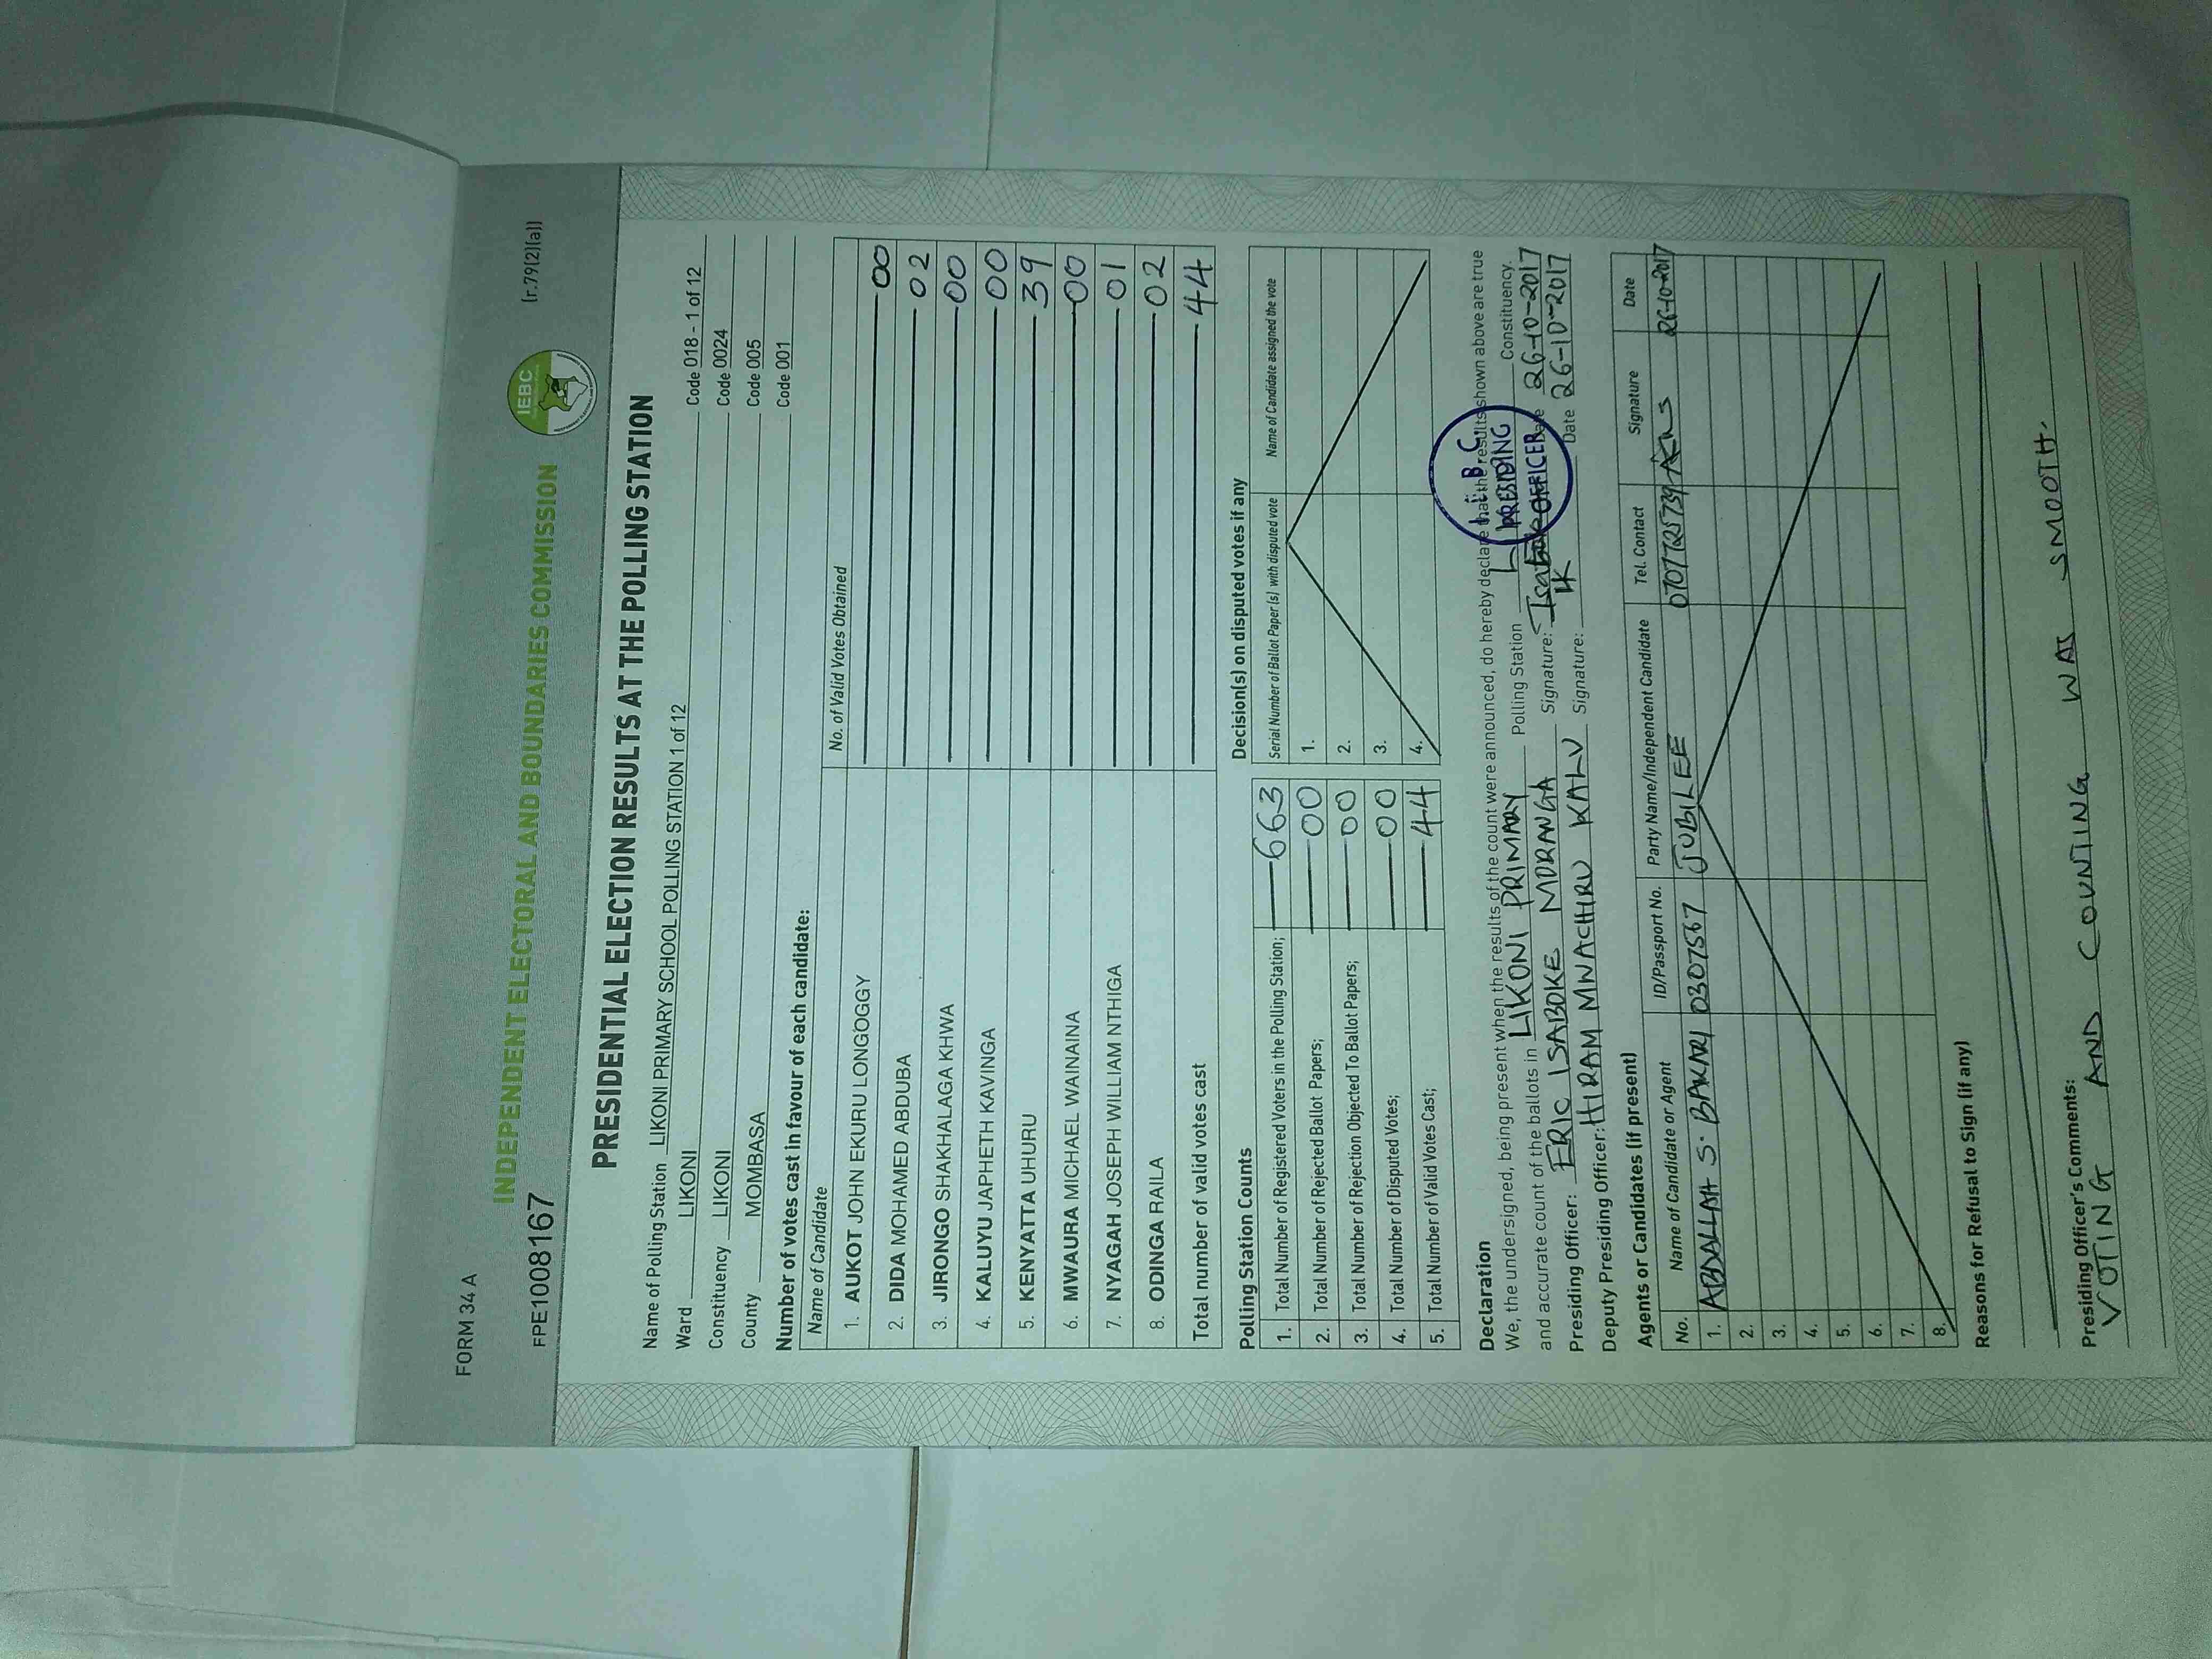 FORM 34 A
(r.79(2)(a))
INDEPENDENT ELECTORAL AND BOUNDARIES COMMISSION
IEBC
FPE1008167
PRESIDENTIAL ELECTION RESULTS AT THE POLLING STATION
Name of Polling Station LIKONI PRIMARY SCHOOL POLLING STATION 1 of 12 Code 018 - 1 of 12
Ward LIKONI Code 0024
Constituency LIKONI Code 005
County MOMBASA Code 001
Number of votes cast in favour of each candidate:
Name of Candidate No. of Valid Votes Obtained
1. AUKOT JOHN EKURU LONGOGGY 00
2. DIDA MOHAMED ABDUBA 02
3. JIRONGO SHAKHALAGA KHWA 00
4. KALUYU JAPHETH KAVINGA 00
5. KENYATTA UHURU 39
6. MWAURA MICHAEL WAINAINA 00
7. NYAGAH JOSEPH WILLIAM NTHIGA 01
8. ODINGA RAILA 02
Total number of valid votes cast 44
Polling Station Counts
1. Total Number of Registered Voters in the Polling Station; 663
2. Total Number of Rejected Ballot Papers; 00
3. Total Number of Rejection Objected To Ballot Papers; 00
4. Total Number of Disputed Votes; 00
5. Total Number of Valid Votes Cast; 44
Decision(s) on disputed votes if any
Serial Number of Ballot Paper (s) with disputed vote Name of Candidate assigned the vote
1.
2.
3.
4.
Declaration
We, the undersigned, being present when the results of the count were announced, do hereby declare that the results shown above are true
and accurate count of the ballots in LIKONI PRIMARY Polling Station Constituency.
Presiding Officer: ERIC ISABOKE MORANGA Signature: Date 26-10-2017
Deputy Presiding Officer: HIRAM MNACHIRU KALU Signature: Date 26-10-2017
I.E.B.C
PRESIDING
OFFICER
Agents or Candidates (if present)
No. Name of Candidate or Agent ID/Passport No. Party Name/Independent Candidate Tel. Contact Signature Date
1. ABDALLAH S. BAKARI 0307567 JUBILEE 0707725739 26-10-2017
2.
3.
4.
5.
6.
7.
8.
Reasons for Refusal to Sign (if any)
Presiding Officer's Comments:
VOTING AND COUNTING WAS SMOOTH.